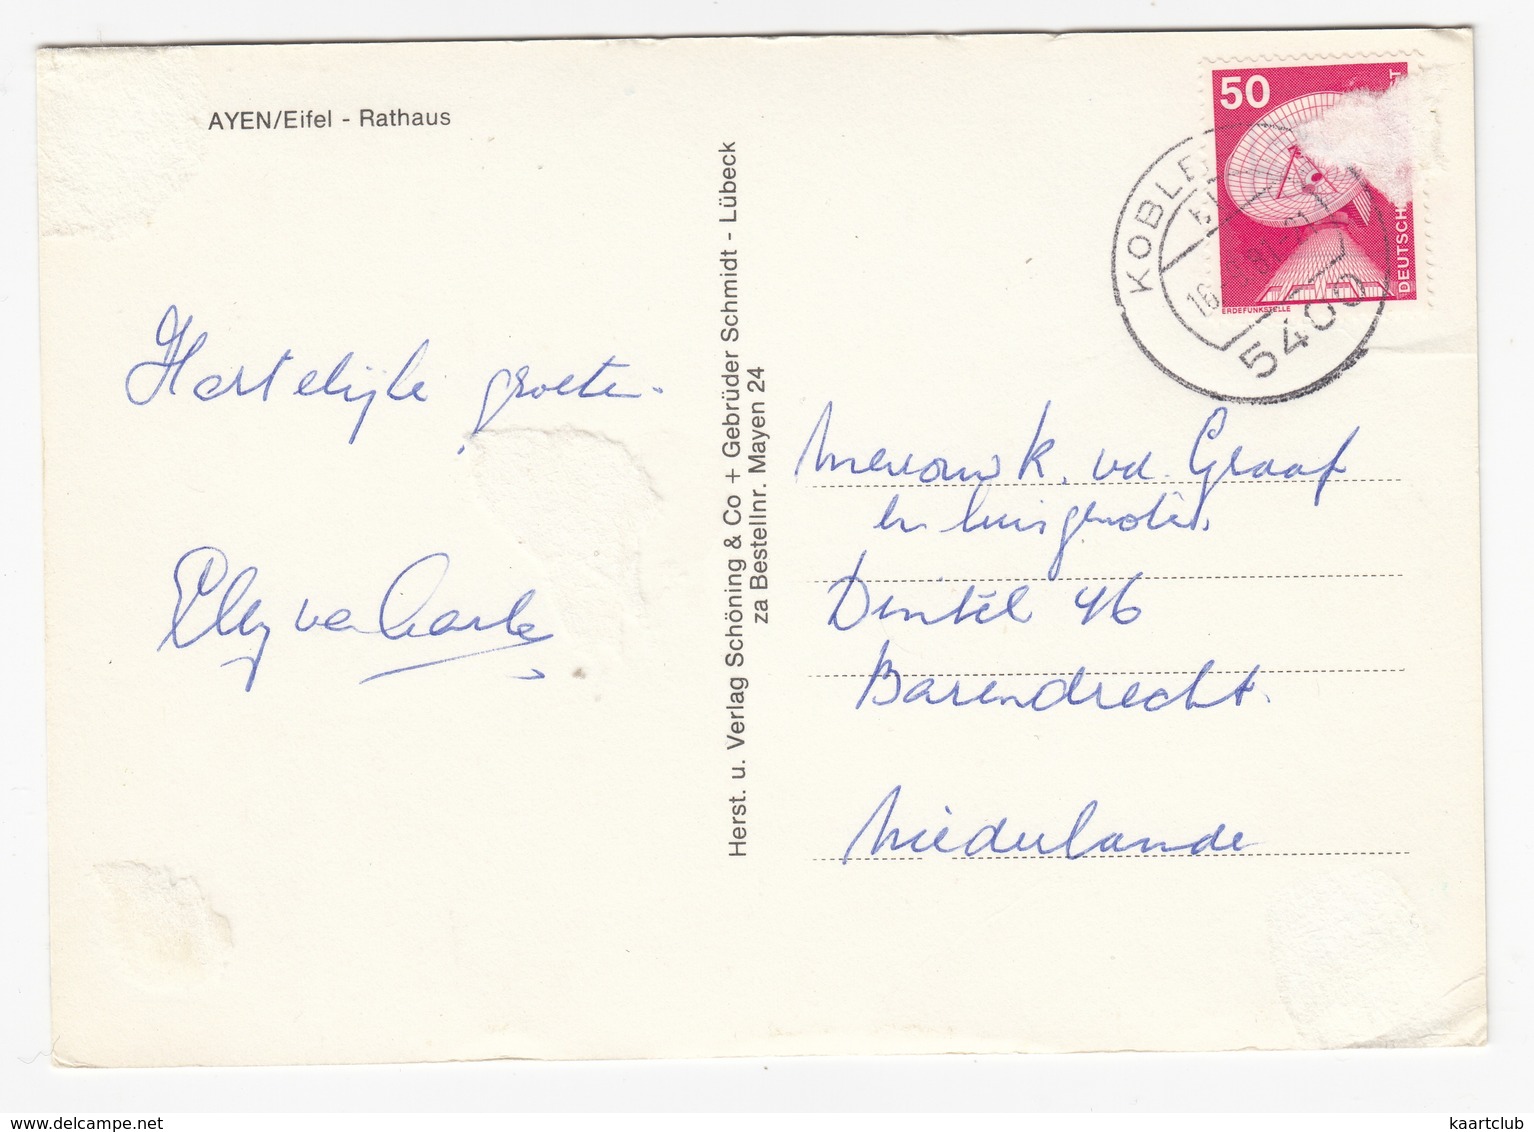 AYEN/Eifel - Rathaus
Hartelijke groeten.
Elly van
Herst. u. Verlag Schöning & Co + Gebrüder Schmidt - Lübeck
za Bestellnr. Mayen 24
50
DEUTSCH
T
ERDEFUNKSTELLE
KOBLE
16. .81-21
5400
Mevrouw K. vd. Graaf
en huisgenoten.
Dintel 46
Barendrecht.
Niederlande
www.delcampe.net
kaartclub